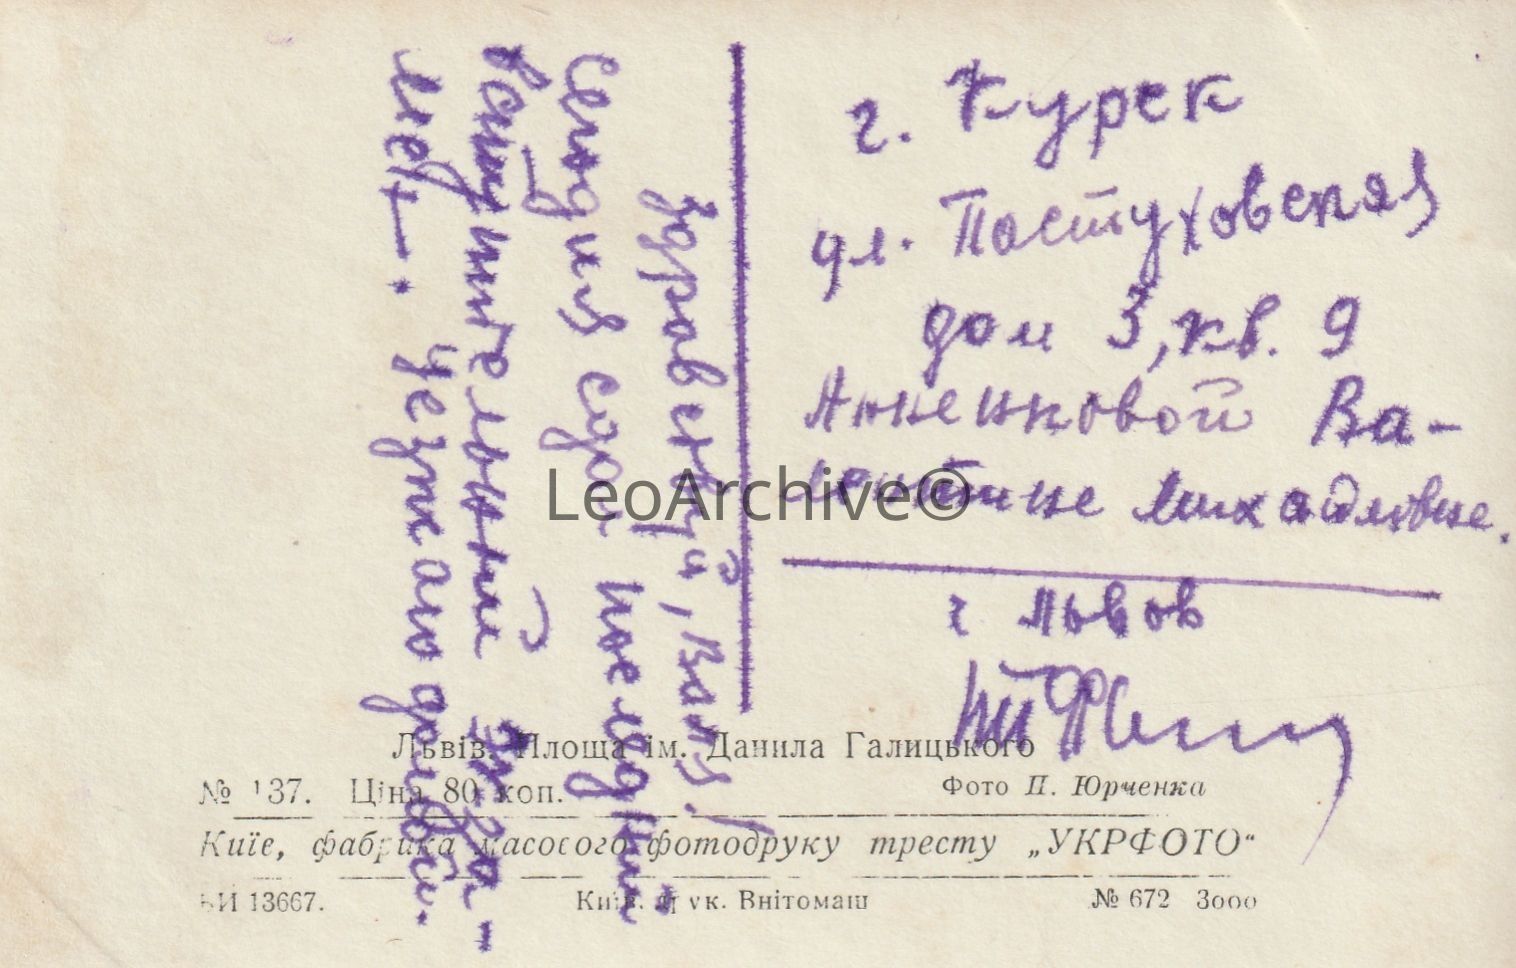 Здравствуй, Валя!
Сегодня сдал последний
вступительный экза-
мен. Уезжаю домой.
г. Курск
ул. Пастуховская
дом 3, кв. 9
Анненковой Ва-
лентине Михайловне.
г Львов
LeoArchive©
Львів. Площа ім. Данила Галицького
№ 137. Ціна 80 коп.
Фото П. Юрченка
Київ, фабрика масового фотодруку тресту „УКРФОТО“
БИ 13667.
Київ. друк. Внітомаш
№ 672 3000